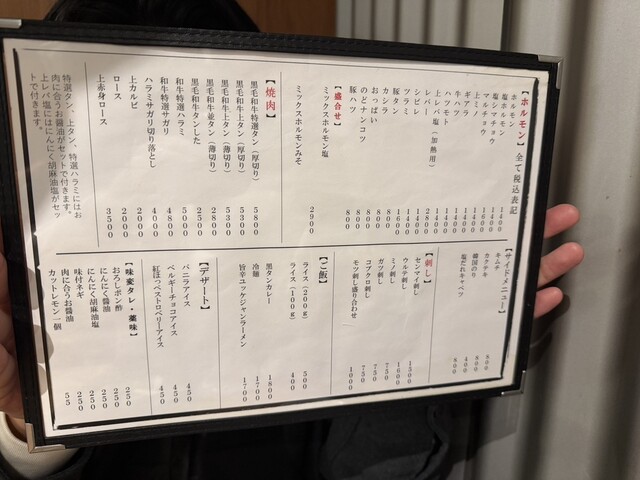 【ホルモン】 全て税込表記
ホルモン 1400
塩ホルモン 1400
塩シマチョウ 1400
マルチョウ 1600
上ミノ 1400
ギアラ 1400
牛ハツ 1400
ハツモト 1400
上レバー塩（加熱用） 2800
レバー 1400
シビレ 1400
ツラミ 1600
豚タン 800
カシラ 800
おっぱい 800
のどナンコツ 800
豚ハツ 800
【盛合せ】
ミックスホルモン塩
ミックスホルモンみそ 2900
【焼肉】
黒毛和牛特選タン（厚切り） 5800
黒毛和牛上タン（厚切り） 5300
黒毛和牛上タン（薄切り） 5300
黒毛和牛並タン（薄切り） 2800
黒毛和牛タンした 2500
和牛特選ハラミ 5000
和牛特選サガリ 4800
ハラミサガリ切り落とし 4000
上カルビ 2000
ロース 2000
上赤身ロース 3500
特選タン、上タン、特選ハラミにはお
肉に合うお醤油がセットで付きます。
上レバ塩にはにんにく胡麻油塩がセッ
トで付きます。
【サイドメニュー】
キムチ 800
カクテキ 800
韓国のり 400
塩だれキャベツ 800
【刺し】
センマイ刺し 1500
ウルテ刺し 1600
ミノ刺し 1600
ガツ刺し 750
コブクロ刺し 750
モツ刺し盛り合わせ 1000
【ご飯】
ライス（200g） 500
ライス（100g） 400
黒タンカレー 1800
冷麺 1700
旨辛ユッケジャンラーメン 1700
【デザート】
バニラアイス 450
ベルギーチョコアイス 450
紅ほっぺストロベリーアイス 450
【味変タレ・薬味】
おろしポン酢 250
にんにく醤油 250
にんにく胡麻油塩 250
味付ネギ 250
肉に合うお醤油 250
カットレモン一個 55